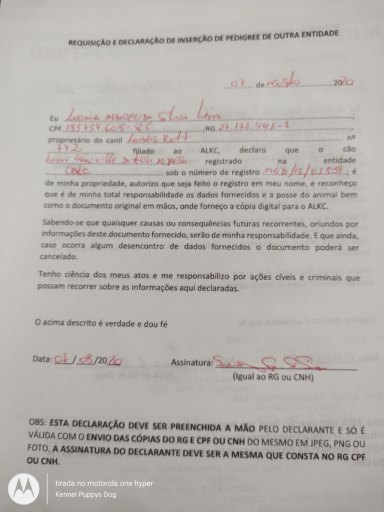 REQUISIÇÃO E DECLARAÇÃO DE INSERÇÃO DE PEDIGREE DE OUTRA ENTIDADE
07 de agosto 2020
Eu Silva Lima
CPF ;RG
proprietário do canil nº
772 filiado ao ALKC, declaro que o cão
registrado na entidade
sob o número de registro ; é
de minha propriedade, autorizo que seja feito o registro em meu nome, e reconheço
que é de minha total responsabilidade os dados fornecidos e a posse do animal bem
como o documento original em mãos, onde forneço a cópia digital para o ALKC.
Sabendo-se que quaisquer causas ou consequências futuras recorrentes, oriundos por
informações deste documento fornecido, serão de minha responsabilidade. E que ainda,
caso ocorra algum desencontro de dados fornecidos o documento poderá ser
cancelado.
Tenho ciência dos meus atos e me responsabilizo por ações cíveis e criminais que
possam recorrer sobre as informações aqui declaradas.
O acima descrito é verdade e dou fé
Data: 07/08/2020 Assinatura:
(Igual ao RG ou CNH)
OBS: ESTA DECLARAÇÃO DEVE SER PREENCHIDA A MÃO PELO DECLARANTE E SÓ É
VÁLIDA COM O ENVIO DAS CÓPIAS DO RG E CPF OU CNH DO MESMO EM JPEG, PNG OU
FOTO, A ASSINATURA DO DECLARANTE DEVE SER A MESMA QUE CONSTA NO RG CPF
OU CNH.
tirada no motorola one hyper
Kennel Puppys Dog